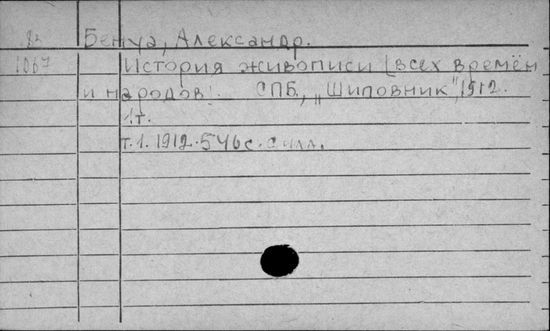 Бенуа, Александр.
1067 История живописи [всех времён
и народов. СПБ, „Шиповник", 1912.
1 т.
т.1. 1912. 546 с. с илл.